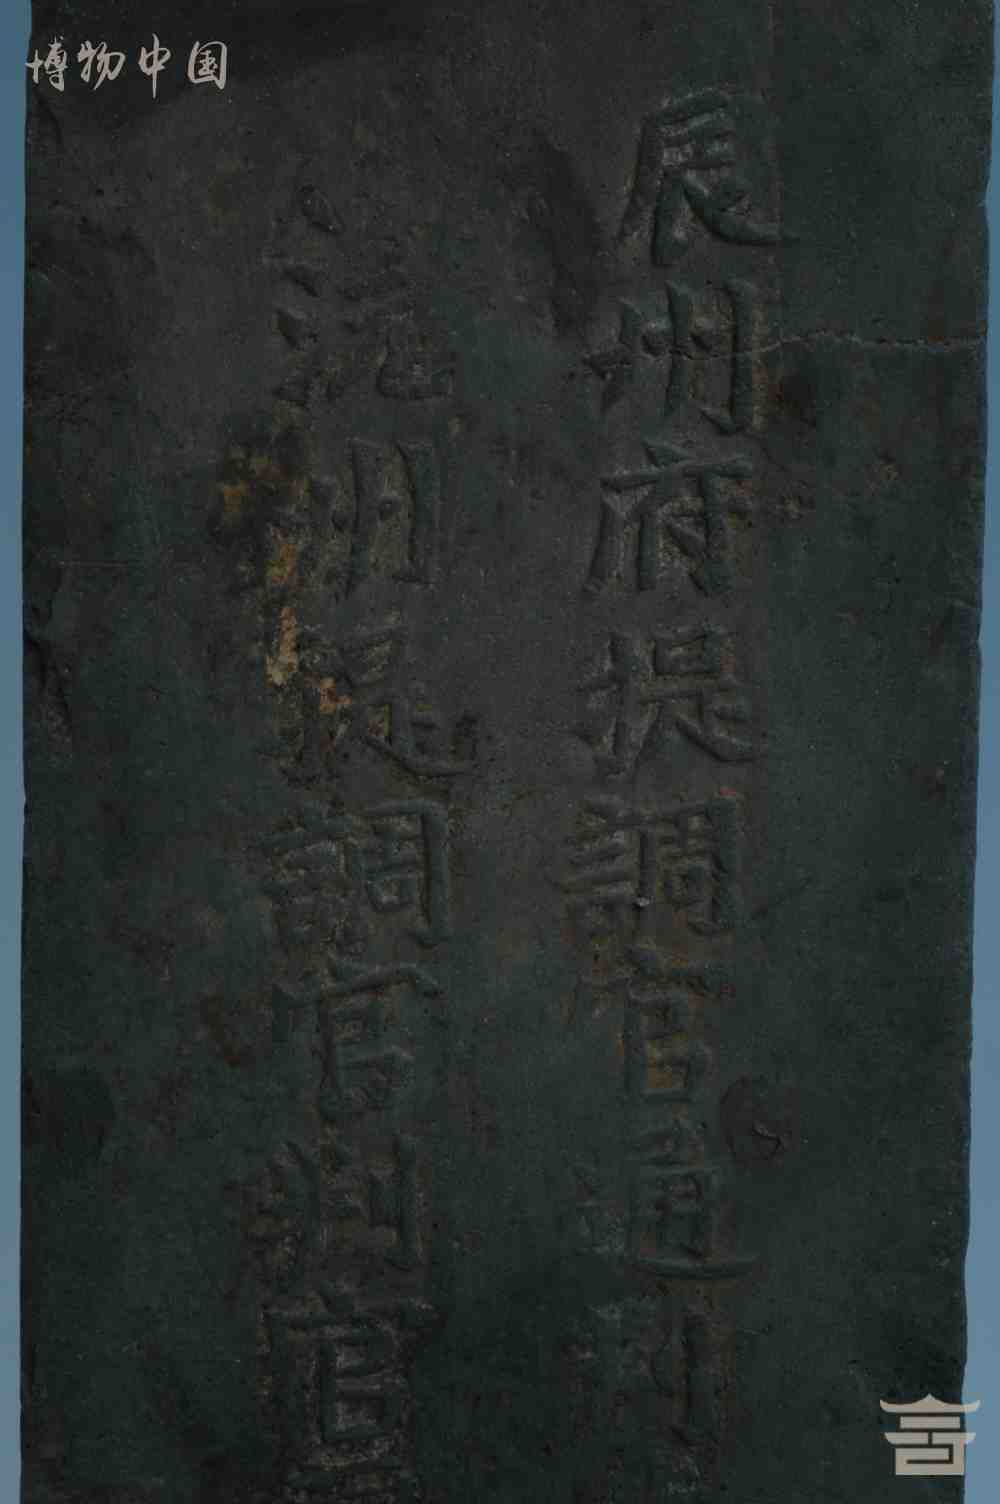 博物中国
辰州府提調官通判
沅州提調官判官